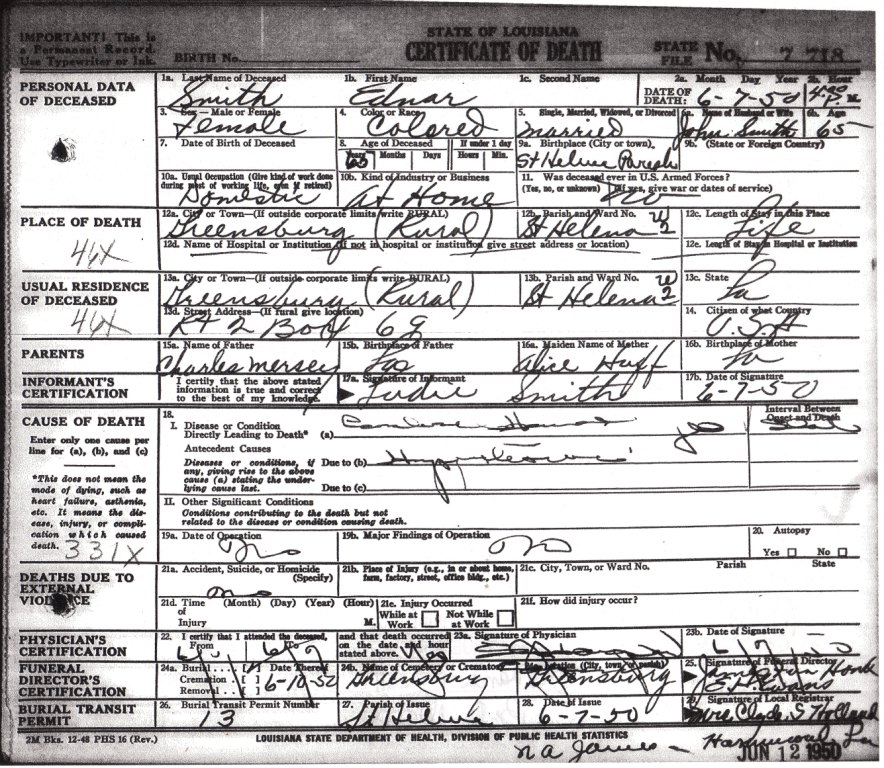 IMPORTANT! This is
a Permanent Record.
Use Typewriter or Ink.
BIRTH No.
STATE OF LOUISIANA
CERTIFICATE OF DEATH
STATE FILE No. 7 718
PERSONAL DATA OF DECEASED
1a. Last Name of Deceased 1b. First Name 1c. Second Name 2a. Month Day Year 2b. Hour
Smith Ednar DATE OF DEATH: 6-7-50 4:00 P. M
3. Sex—Male or Female 4. Color or Race 5. Single, Married, Widowed, or Divorced 6a. Name of Husband or Wife 6b. Age
Female Colored Married John Smith 65
7. Date of Birth of Deceased 8. Age of Deceased If under 1 day 9a. Birthplace (City or town) 9b. (State or Foreign Country)
Years Months Days Hours Min.
65 St Helena Parish
10a. Usual Occupation (Give kind of work done during most of working life, even if retired) 10b. Kind of Industry or Business 11. Was deceased ever in U.S. Armed Forces?
(Yes, no, or unknown) (If yes, give war or dates of service)
Domestic At Home no
PLACE OF DEATH
46X
12a. City or Town—(If outside corporate limits write RURAL) 12b. Parish and Ward No. 12c. Length of Stay in this Place
Greensburg (Rural) St Helena W 2 Life
12d. Name of Hospital or Institution (If not in hospital or institution give street address or location) 12e. Length of Stay in Hospital or Institution
USUAL RESIDENCE OF DECEASED
46X
13a. City or Town—(If outside corporate limits write RURAL) 13b. Parish and Ward No. 13c. State
Greensburg (Rural) St Helena W 2 La
13d. Street Address—(If rural give location) 14. Citizen of what Country
Rt 2 Box 69 U.S.A
PARENTS
15a. Name of Father 15b. Birthplace of Father 16a. Maiden Name of Mother 16b. Birthplace of Mother
Charles Mersey La Alice Huff La
INFORMANT'S CERTIFICATION
I certify that the above stated information is true and correct to the best of my knowledge.
17a. Signature of Informant 17b. Date of Signature
Smith 6-7-50
CAUSE OF DEATH
Enter only one cause per line for (a), (b), and (c)
*This does not mean the mode of dying, such as heart failure, asthenia, etc. It means the disease, injury, or complication which caused death.
331X
18.
I. Disease or Condition Directly Leading to Death* (a)
Interval Between Onset and Death
Antecedent Causes
Diseases or conditions, if any, giving rise to the above cause (a) stating the underlying cause last.
Due to (b)
Due to (c)
II. Other Significant Conditions
Conditions contributing to the death but not related to the disease or condition causing death.
19a. Date of Operation 19b. Major Findings of Operation 20. Autopsy
no no Yes No
DEATHS DUE TO EXTERNAL VIOLENCE
21a. Accident, Suicide, or Homicide (Specify) 21b. Place of Injury (e.g., in or about home, farm, factory, street, office bldg., etc.) 21c. City, Town, or Ward No. Parish State
no
21d. Time of Injury (Month) (Day) (Year) (Hour) M. 21e. Injury Occurred While at Work Not While at Work 21f. How did injury occur?
PHYSICIAN'S CERTIFICATION
22. I certify that I attended the deceased, From and that death occurred on the date and hour stated above. 23a. Signature of Physician 23b. Date of Signature
FUNERAL DIRECTOR'S CERTIFICATION
24a. Burial Cremation Removal Date Thereof 24b. Name of Cemetery or Crematory 24c. Location (City, town or parish) 25. Signature of Funeral Director
6-10-50 Greensburg Greensburg
BURIAL TRANSIT PERMIT
26. Burial Transit Permit Number 27. Parish of Issue 28. Date of Issue 29. Signature of Local Registrar
13 St Helena 6-7-50 Mrs. Clyde S Holland
2M Bks. 12-48 PHS 16 (Rev.)
LOUISIANA STATE DEPARTMENT OF HEALTH, DIVISION OF PUBLIC HEALTH STATISTICS
Hammond, La
JUN 12 1950